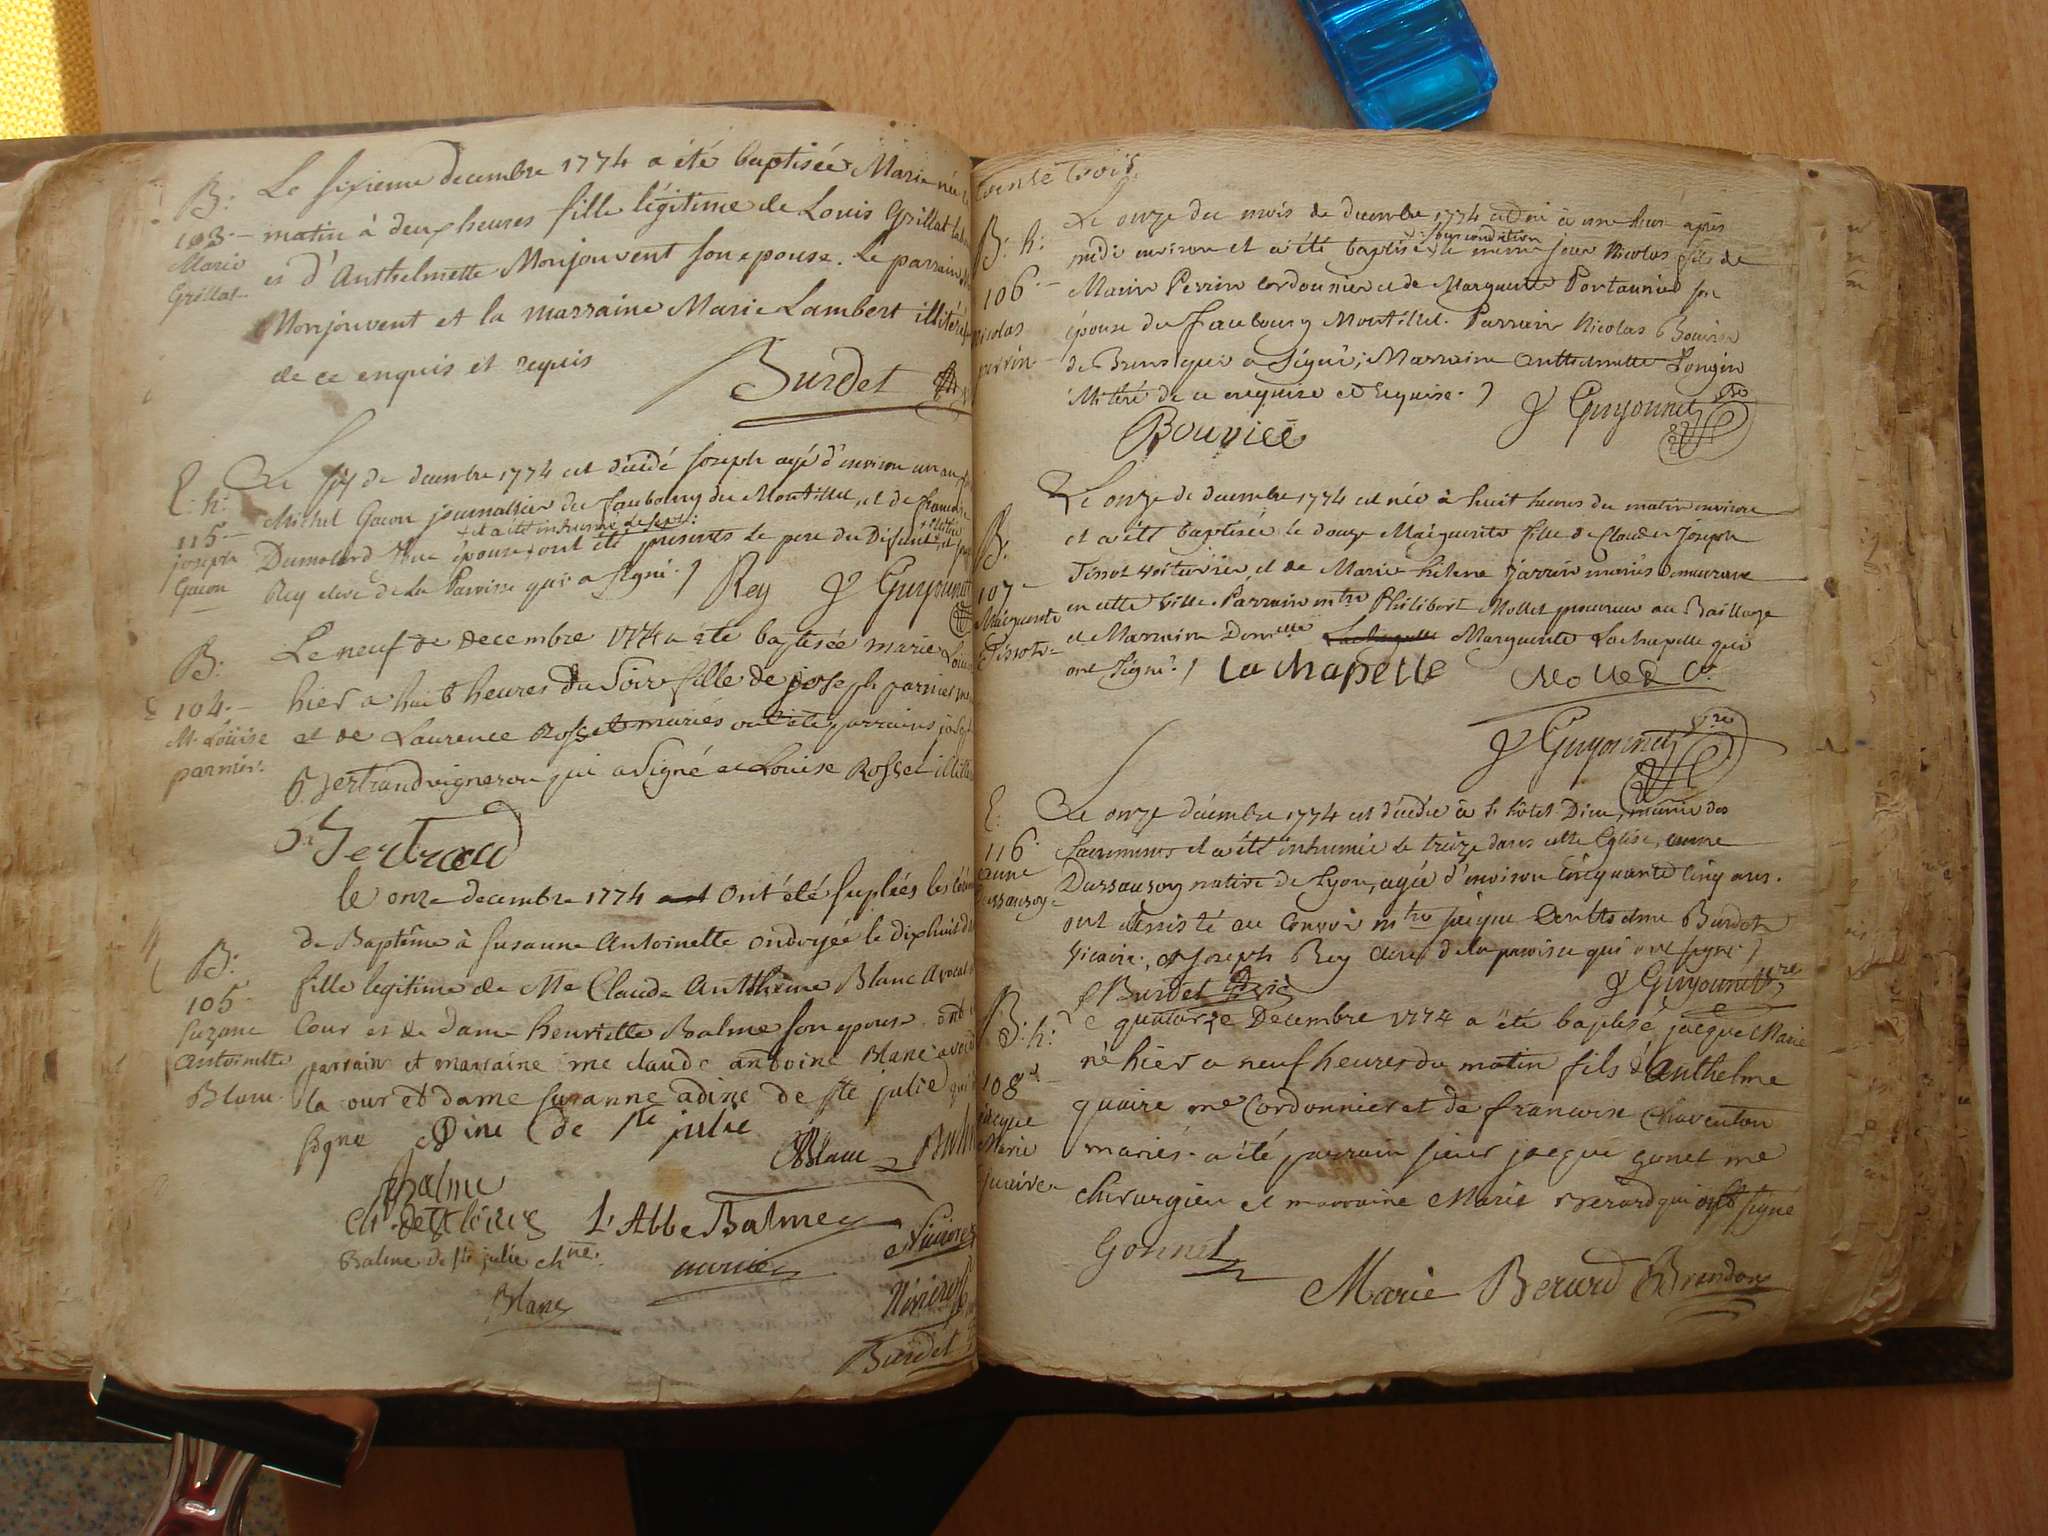 B:
103.
Marie
Grillat.
Le sixieme decembre 1774 a été baptisée Marie née
matin à deux heures fille légitime de Louis Grillat
et d'Anthelmette Monjouvent son epouse. Le parrain
Monjouvent et la marraine Marie Lambert
de ce enquis et requis
Burdet
E. h:
115.
joseph
Gacon
Le six de decembre 1774 est décédé Joseph agé d'environ un an
Michel Gacon journalier du faubourg du Montillet, et de
et a été inhumé le sept:
Dumolard son épouse ont été présents le pere du Défunt, et
Rey clerc de la Paroisse qui a signé. Rey J Guyonnet
B:
104.
M. Loüise
parnier.
Le neuf de decembre 1774 a été baptisée marie
hier a huit heures du Soir fille de joseph parnier
et de Laurence Rosset mariés ont été parrains
Bertrand vigneron qui a signé et Louise Rosset
Bertrand
B:
105
Suzane
Antoinette
Blanc.
le onze decembre 1774 ont été suplées les
de Baptême à Susanne Antoinette ondoyée le dix huit
fille legitime de Me Claude Anthelme Blanc Avocat
Cour et de dame henriette Balme son epouse. ont
parrain et marraine me claude antoine Blanc avocat
la cour et dame suzanne adine de ste julie
signé Dine de ste julie
Blanc
Balme
L'Abbe Balme
Balme de ste julie chne.
Blanc
Burdet
trente trois
B: h:
106.
nicolas
perrin
Le onze du mois de decembre 1774 est né à une heure après
sous condition
midi environ et a été baptisé le même jour Nicolas fils de
Marin Perrin cordonnier et de Marguerite Portaunier son
épouse du faubourg Montillet. Parrain Nicolas Bouvier
de Brens qui a signé; Marraine Anthelmette Longin
illitéré de ce enquise et requise.
Bouvier
J Guyonnet
B.
107
Marguerite
Tissot
Le onze de decembre 1774 est née à huit heures du matin environ
et a été baptisée le douze Marguerite fille de Claude Joseph
Tissot voiturier, et de Marie hélene Jarrin mariés demeurans
en cette ville. Parrain mtre Philibert Mollet procureur au Bailliage
et Marraine Demelle Marguerite Lachapelle qui
ont signé. La chapelle Mollet
J Guyonnet
E.
116.
anne
Dussausoy
Le onze décembre 1774 est décédée à l'hôtel-Dieu, munie des
sacremens et a été inhumée le treize dans cette Eglise, anne
Dussausoy native de Lyon, agée d'environ Cinquante Cinq ans.
ont assisté au Convoi mtre jacque Anthelme Burdet
Vicaire, et joseph Rey clerc de la paroisse qui ont signé
Burdet
J Guyonnet
B: h:
108
jacque
Marie
quaire
Le quatorze Decembre 1774 a été baptisé jacque Marie
né hier a neuf heures du matin fils d'Anthelme
quaire me Cordonnier et de francoise Chaventon
mariés. a été parrain sieur jacque gonet me
chirurgien et marraine Marie Berard qui ont signé
Gonnet
Marie Berard Brendon